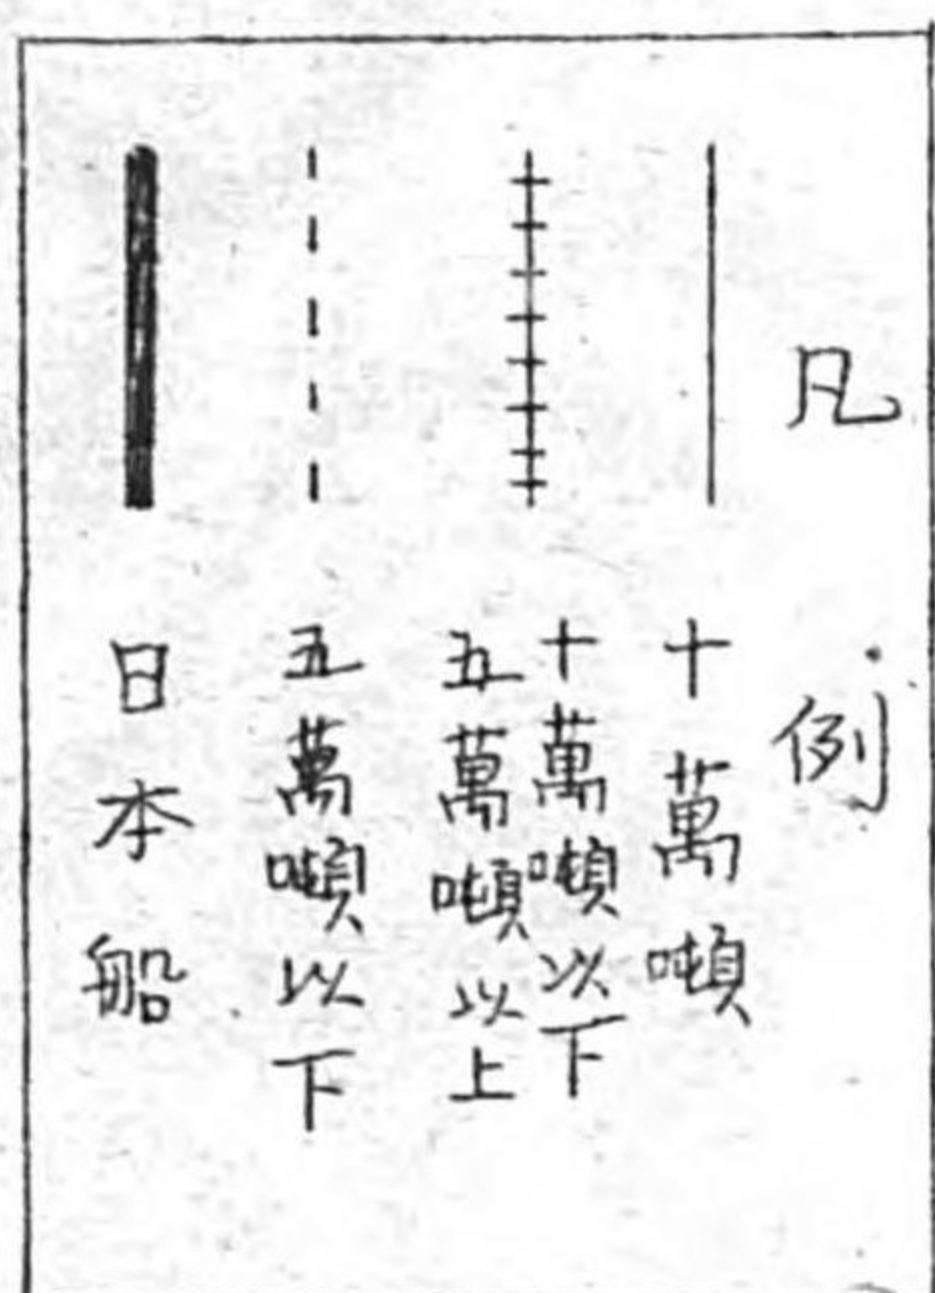 凡例
十萬噸
十萬噸以下
五萬噸以上
五萬噸以下
日本船